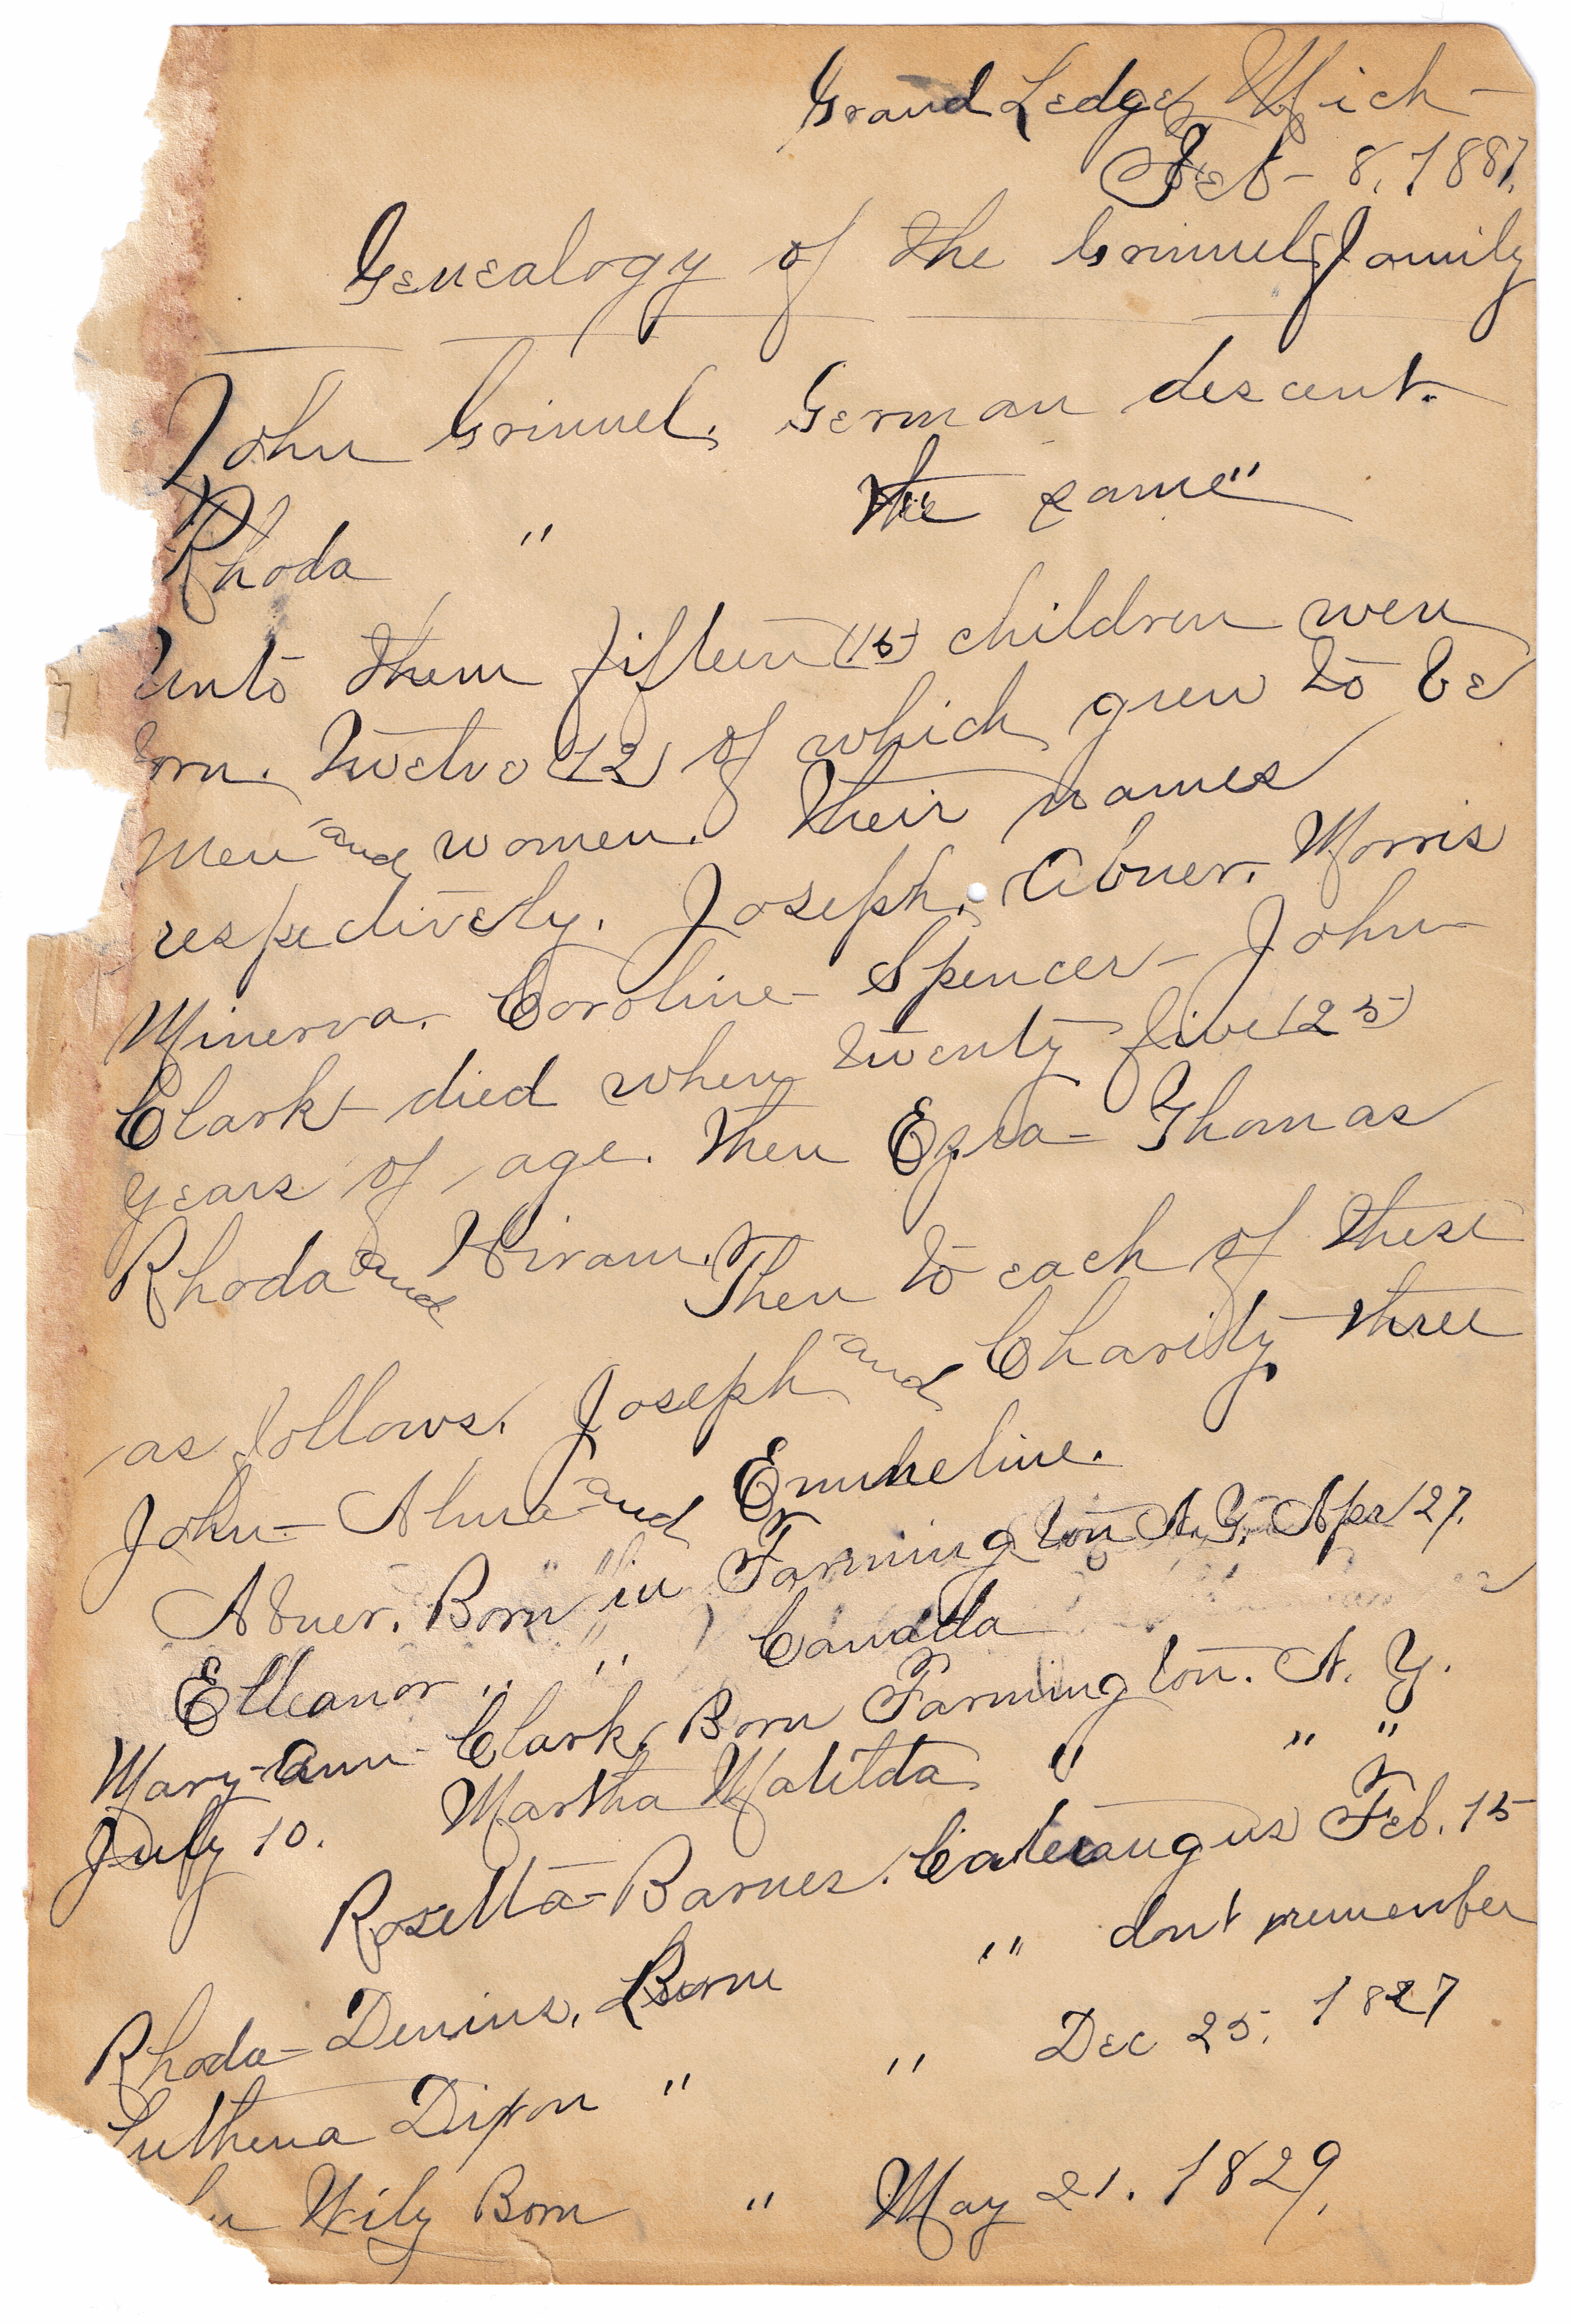 Grand Ledge, Mich -
Feb - 8. 1887.
Genealogy of the Grinnel family
John Grinnel. German descent.
Rhoda " the same"
Unto them fifteen (15) children were
born. Twelve (12) of which grew to be
men and women. Their names
respectively. Joseph. Abner. Morris
Minerva. Caroline - Spencer - John
Clark - died when twenty five (25)
years of age. then Ezra - Thomas
Rhoda and Hiram. Then to each of these
as follows. Joseph and Charity three
John - Alma and Emmeline.
Abner. Born in Farmington N.Y. Apr 27.
Elleanor " " Canada
Mary-ann - Clark. Born Farmington. N. Y.
July 10. Martha Matilda " " "
Rosetta - Barnes. Cateraugus Feb. 15
Rhoda - Denius. Born " dont remember
Luthena Dixon " " Dec 25. 1827
Wily Born " May 21. 1829.